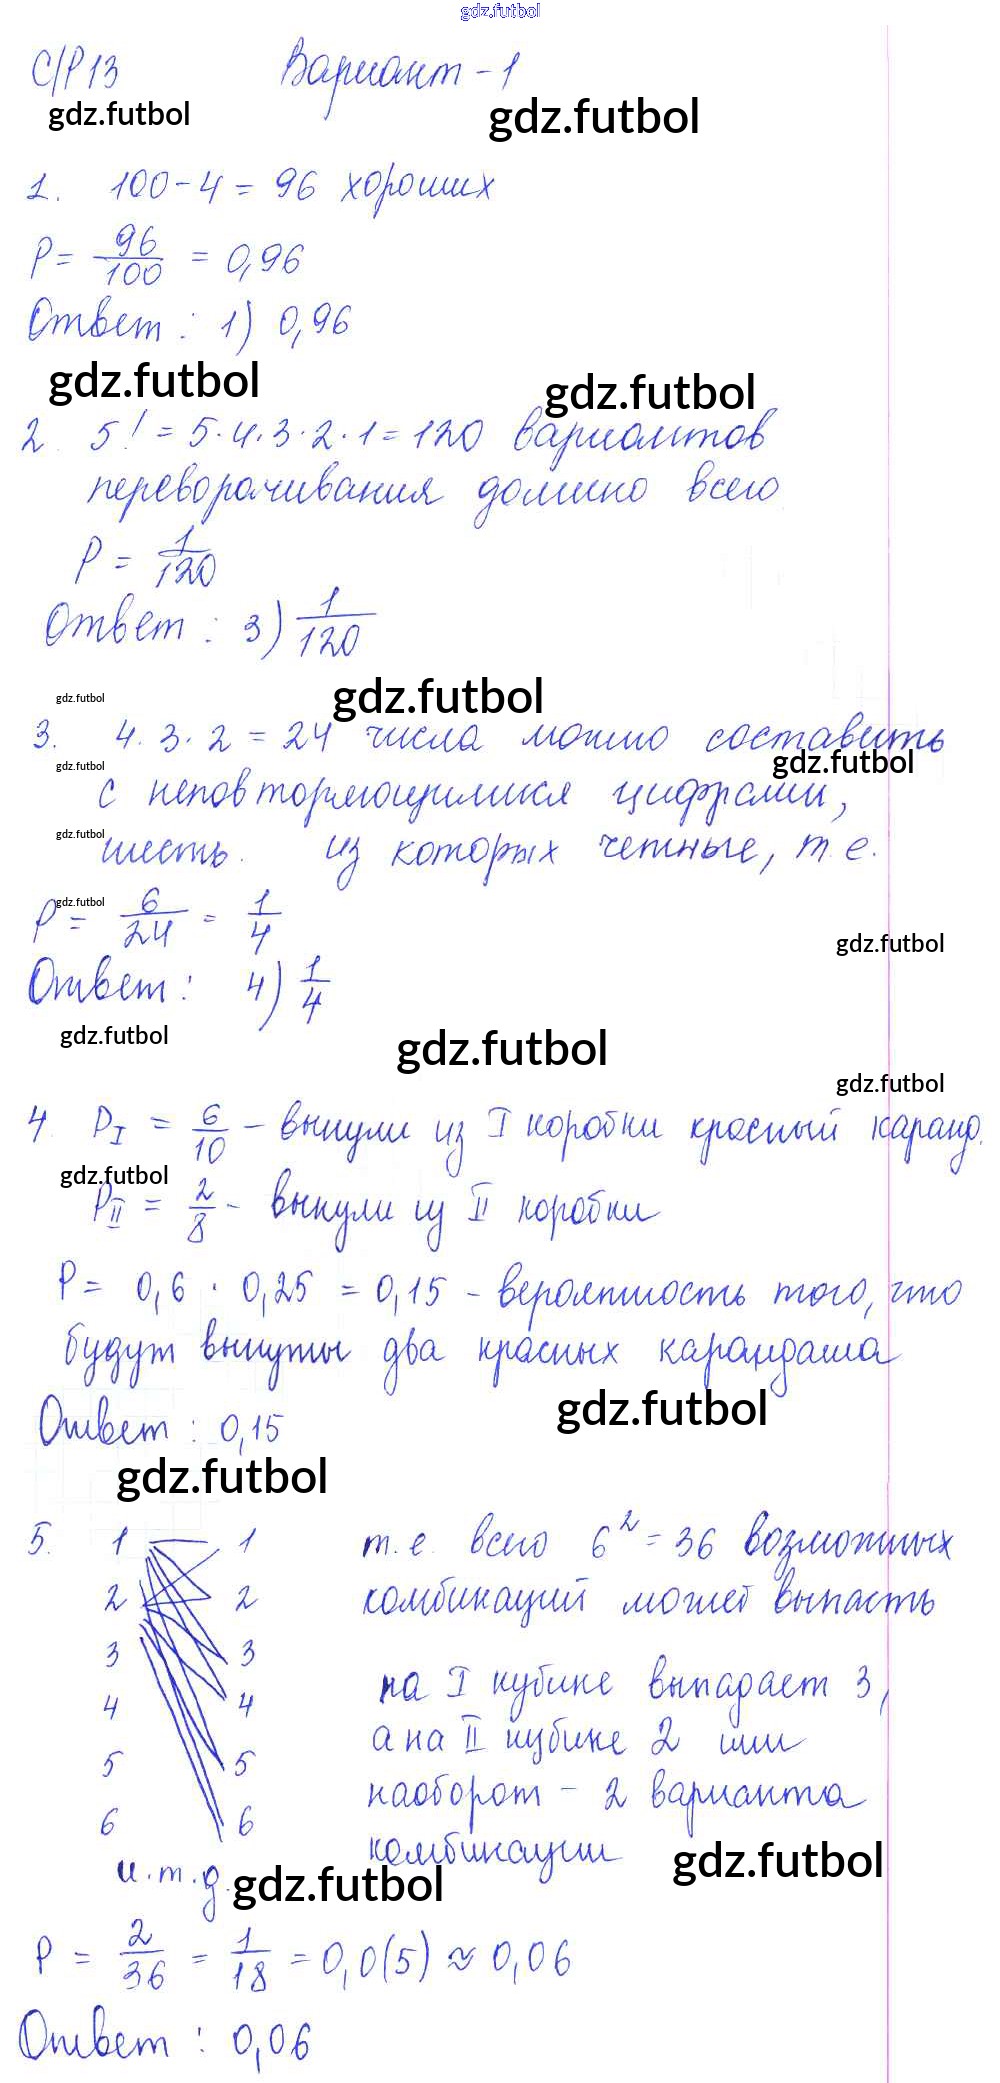 gdz.futbol
С/Р 13 Вариант - 1
gdz.futbol gdz.futbol
1. 100 - 4 = 96 хороших
P = 96/100 = 0,96
Ответ: 1) 0,96
gdz.futbol gdz.futbol
2. 5! = 5·4·3·2·1 = 120 вариантов
переворачивания домино всего
P = 1/120
Ответ: 3) 1/120
gdz.futbol gdz.futbol
3. 4·3·2 = 24 числа можно составить
gdz.futbol gdz.futbol
с неповторяющимися цифрами,
gdz.futbol
шесть из которых четные, т.е.
gdz.futbol
P = 6/24 = 1/4
gdz.futbol
Ответ: 4) 1/4
gdz.futbol gdz.futbol
gdz.futbol
4. P_I = 6/10 - вынули из I коробки красный каранд.
gdz.futbol
P_II = 2/8 - вынули из II коробки
P = 0,6 · 0,25 = 0,15 - вероятность того, что
будут вынуты два красных карандаша
gdz.futbol
Ответ: 0,15
gdz.futbol
5. 1 1 т.е. всего 6² = 36 возможных
2 2 комбинаций может выпасть
3 3
на I кубике выпадает 3,
4 4
а на II кубике 2 или
5 5
наоборот - 2 варианта
6 6
комбинации
и.т.д.
gdz.futbol gdz.futbol
P = 2/36 = 1/18 = 0,0(5) ≈ 0,06
Ответ: 0,06